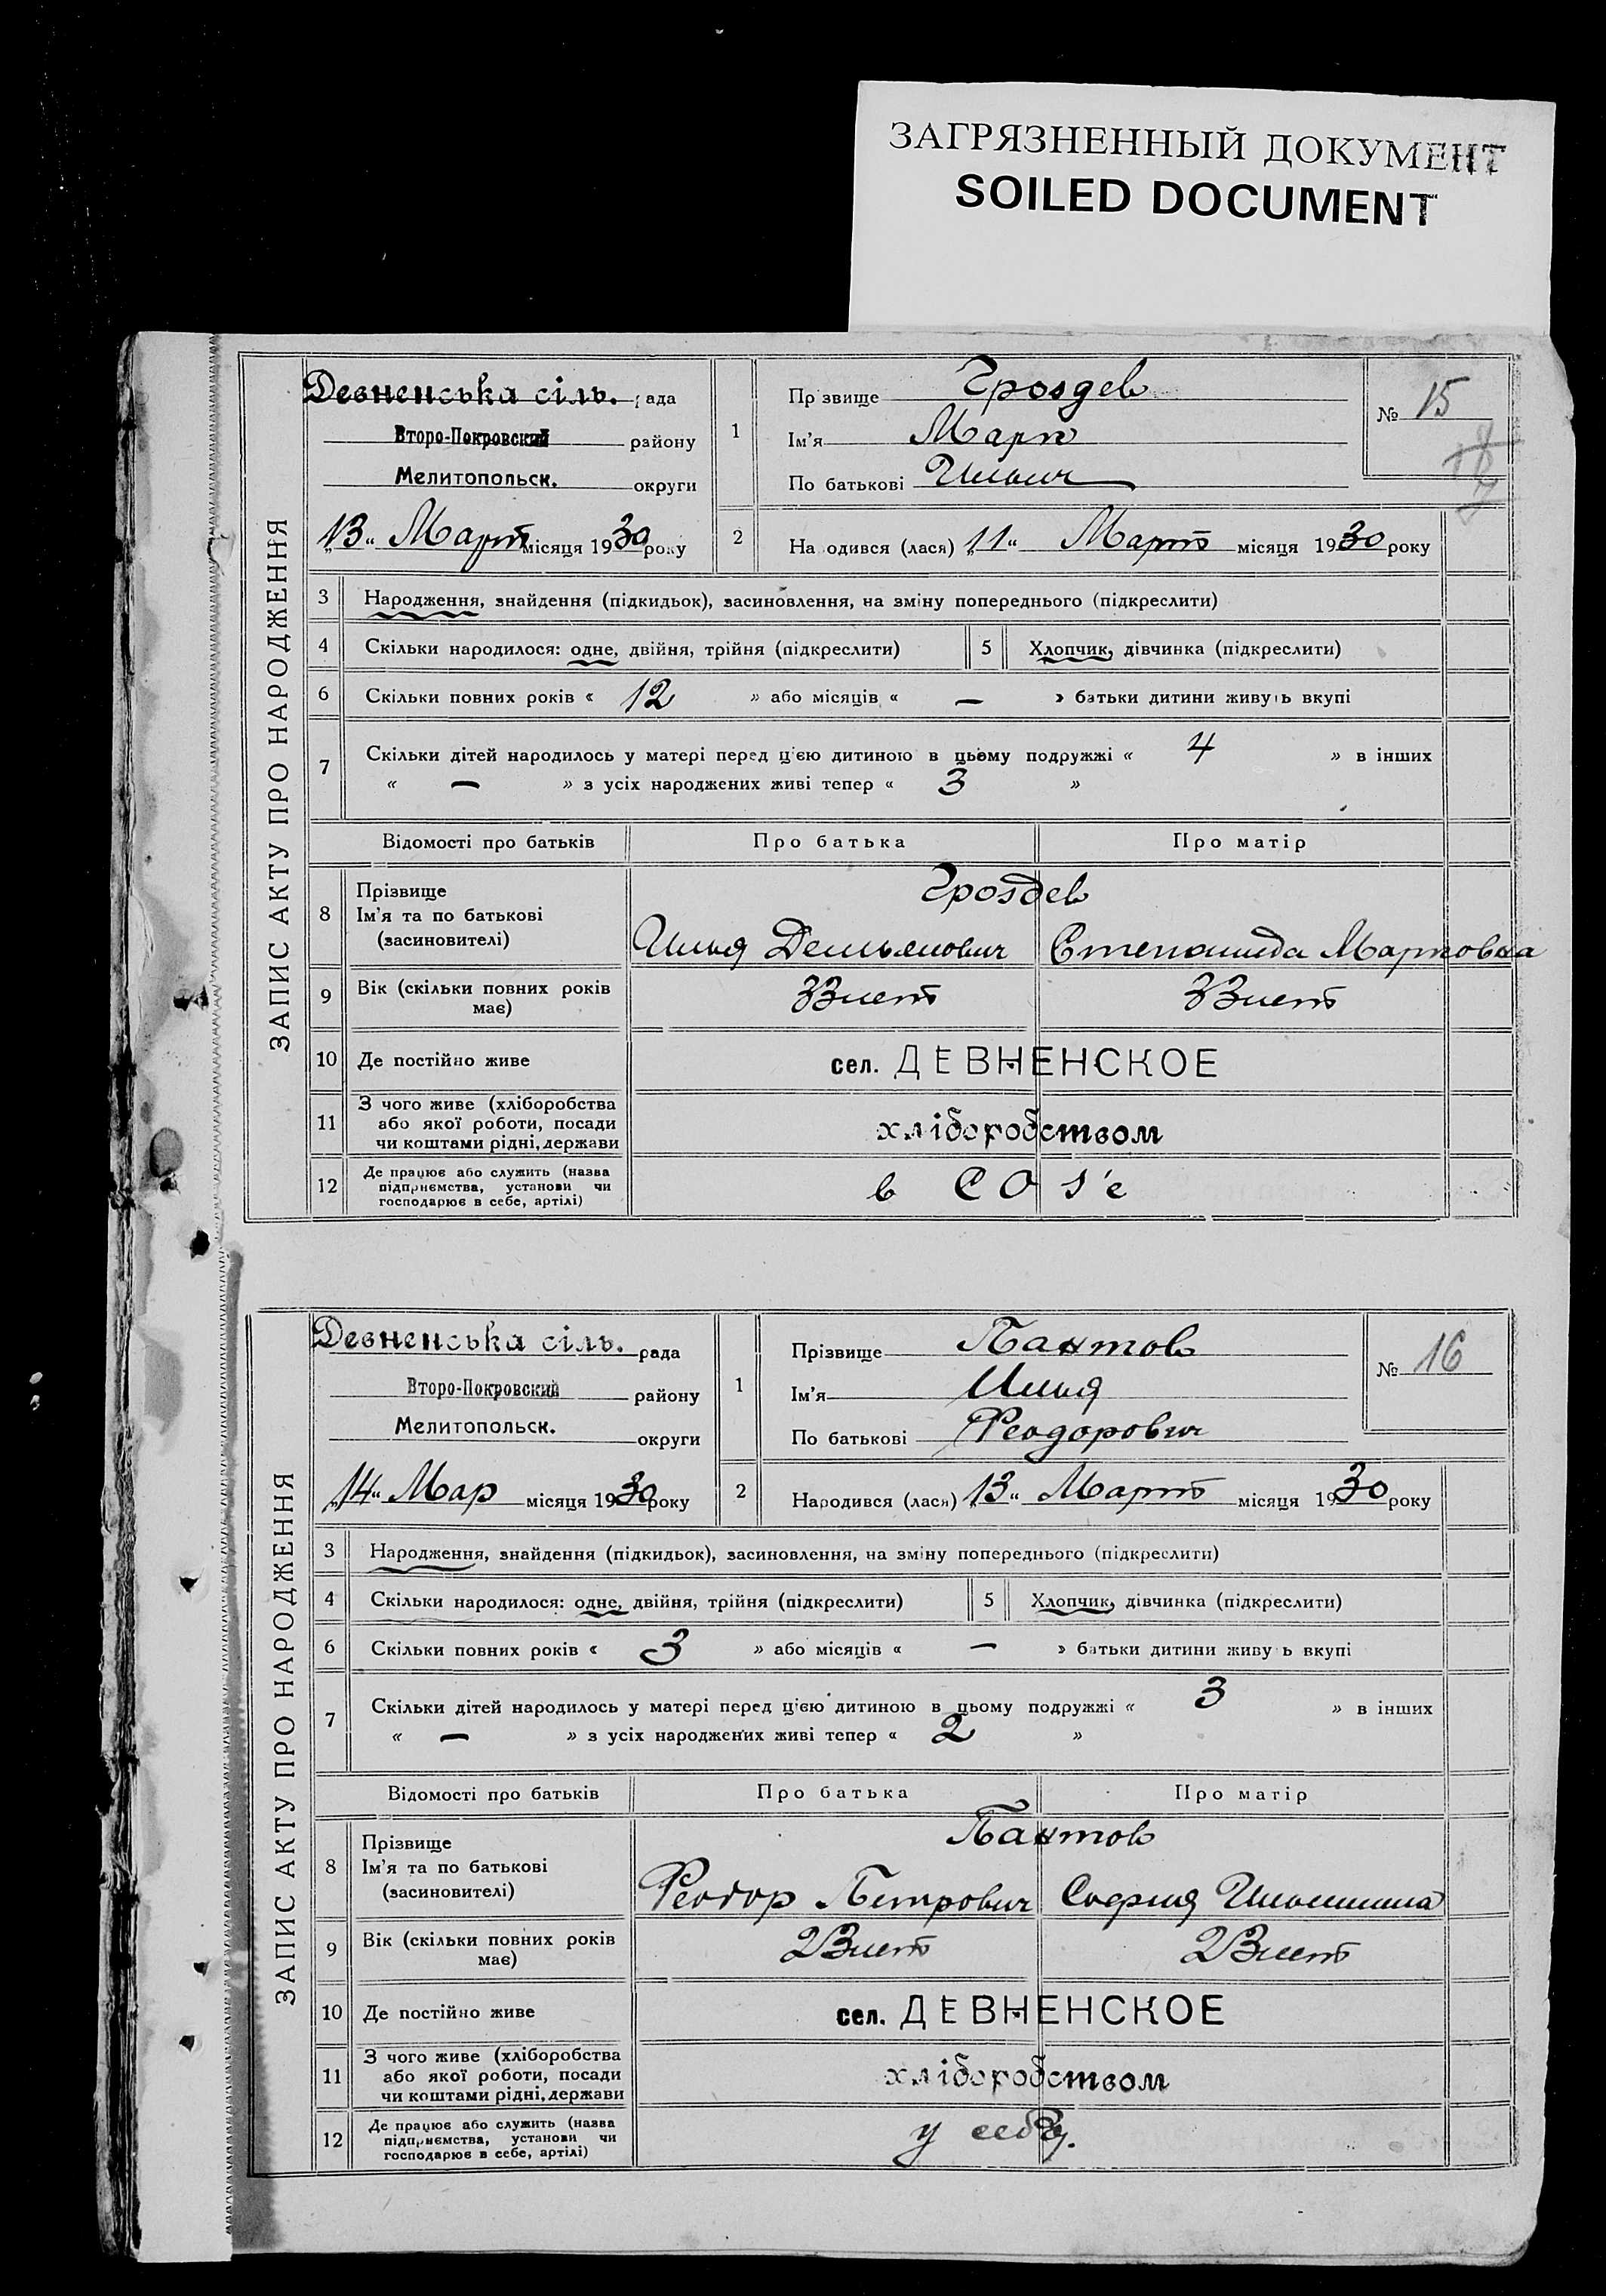 ЗАГРЯЗНЕННЫЙ ДОКУМЕНТ
SOILED DOCUMENT
ЗАПИС АКТУ ПРО НАРОДЖЕННЯ
Девненська сіль. рада
Второ-Покровский району
Мелитопольск. округи
„13“ Март місяця 1930 року
1
Прізвище Гроздев
Ім'я Марк
По батькові Ильич
№ 15
2 Народився (лася) „11“ Март місяця 1930 року
3 Народження, знайдення (підкидьок), засиновлення, на зміну попереднього (підкреслити)
4 Скільки народилося: одне, двійня, трійня (підкреслити) 5 Хлопчик, дівчинка (підкреслити)
6 Скільки повних років « 12 » або місяців « — » батьки дитини живуть вкупі
7 Скільки дітей народилось у матері перед ц'єю дитиною в цьому подружжі « 4 » в інших
« — » з усіх народжених живі тепер « 3 »
Відомості про батьків Про батька Про матір
8 Прізвище Гроздев
Ім'я та по батькові
(засиновителі) Илья Демьянович Степанида Марковна
9 Вік (скільки повних років має) 33 лет 33 лет
10 Де постійно живе сел. ДЕВНЕНСКОЕ
11 З чого живе (хліборобства
або якої роботи, посади
чи коштами рідні, держави хліборобством
12 Де працює або служить (назва
підприємства, установи чи
господарює в себе, артілі) в СОЗ'е
ЗАПИС АКТУ ПРО НАРОДЖЕННЯ
Девненська сіль. рада
Второ-Покровский району
Мелитопольск. округи
„14“ Мар місяця 1930 року
1
Прізвище Пантов
Ім'я Илья
По батькові Феодорович
№ 16
2 Народився (лася) „13“ Март місяця 1930 року
3 Народження, знайдення (підкидьок), засиновлення, на зміну попереднього (підкреслити)
4 Скільки народилося: одне, двійня, трійня (підкреслити) 5 Хлопчик, дівчинка (підкреслити)
6 Скільки повних років « 3 » або місяців « — » батьки дитини живуть вкупі
7 Скільки дітей народилось у матері перед ц'єю дитиною в цьому подружжі « 3 » в інших
« — » з усіх народжених живі тепер « 2 »
Відомості про батьків Про батька Про матір
8 Прізвище Пантов
Ім'я та по батькові
(засиновителі) Феодор Петрович София
9 Вік (скільки повних років має) 23 лет 23 лет
10 Де постійно живе сел. ДЕВНЕНСКОЕ
11 З чого живе (хліборобства
або якої роботи, посади
чи коштами рідні, держави хліборобством
12 Де працює або служить (назва
підприємства, установи чи
господарює в себе, артілі) у себя.